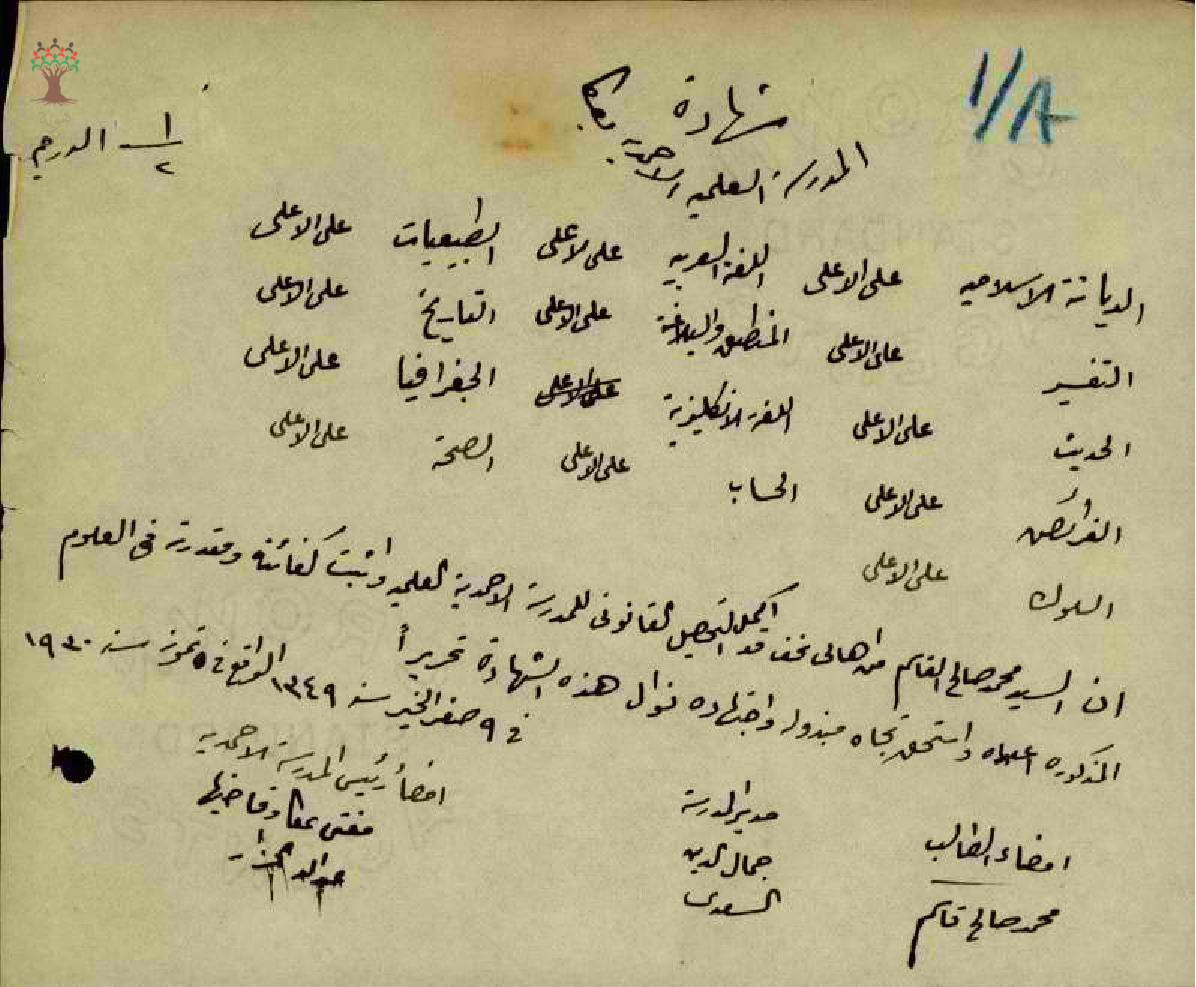 1/A
شهادة
المدرسة العلمية الاحمدية بعكا
١/٢ الدرجة
الديانة الاسلاميه على الاعلى اللغة العربيه على الاعلى الطبيعيات على الاعلى
التفسير على الاعلى المنطق والبلاغة على الاعلى التاريخ على الاعلى
الحديث على الاعلى اللغة الانكليزية على الاعلى الجغرافيا على الاعلى
الفرائض على الاعلى الحساب على الاعلى الصحة على الاعلى
السلوك على الاعلى
ان السيد محمد صالح القاسم من اهالي نحف قد اكمل التحصيل القانوني للمدرسة الاحمدية العلميه واثبت كفائته ومقدرته في العلوم
المذكوره اعلاه واستحق تجاه مبذوله واجتهاده نوال هذه الشهادة تحريراً
في ٩ صفر الخير سنة ١٣٤٩ الواقع في ٥ تموز سنة ١٩٣٠
امضاء الطالب
محمد صالح قاسم
مدير المدرسة
جمال الدين
السعدي
امضأ رئيس المدرسة الاحمدية
مفتي عكا وقاضيها
عبدالله الجزار